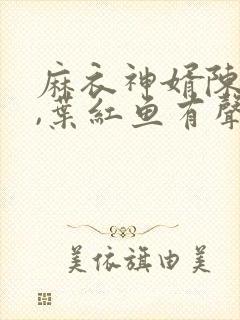 麻衣神婿陳
,葉紅魚有聲
美依旗由美